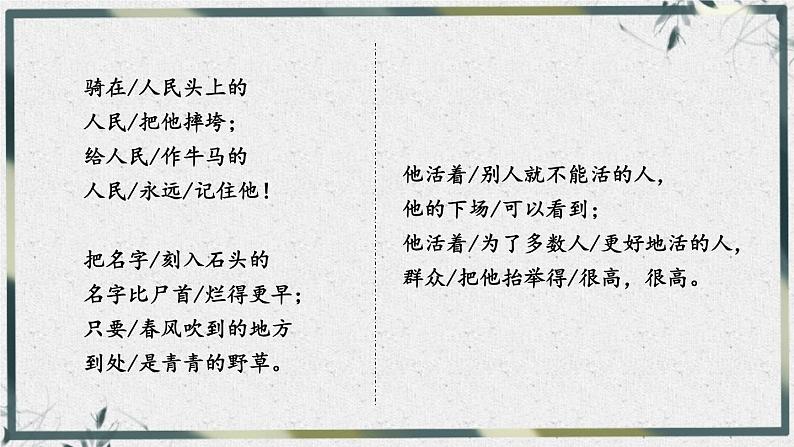 骑在/人民头上的
人民/把他摔垮；
给人民/作牛马的
人民/永远/记住他！
把名字/刻入石头的
名字比尸首/烂得更早；
只要/春风吹到的地方
到处/是青青的野草。
他活着/别人就不能活的人，
他的下场/可以看到；
他活着/为了多数人/更好地活的人，
群众/把他抬举得/很高，很高。